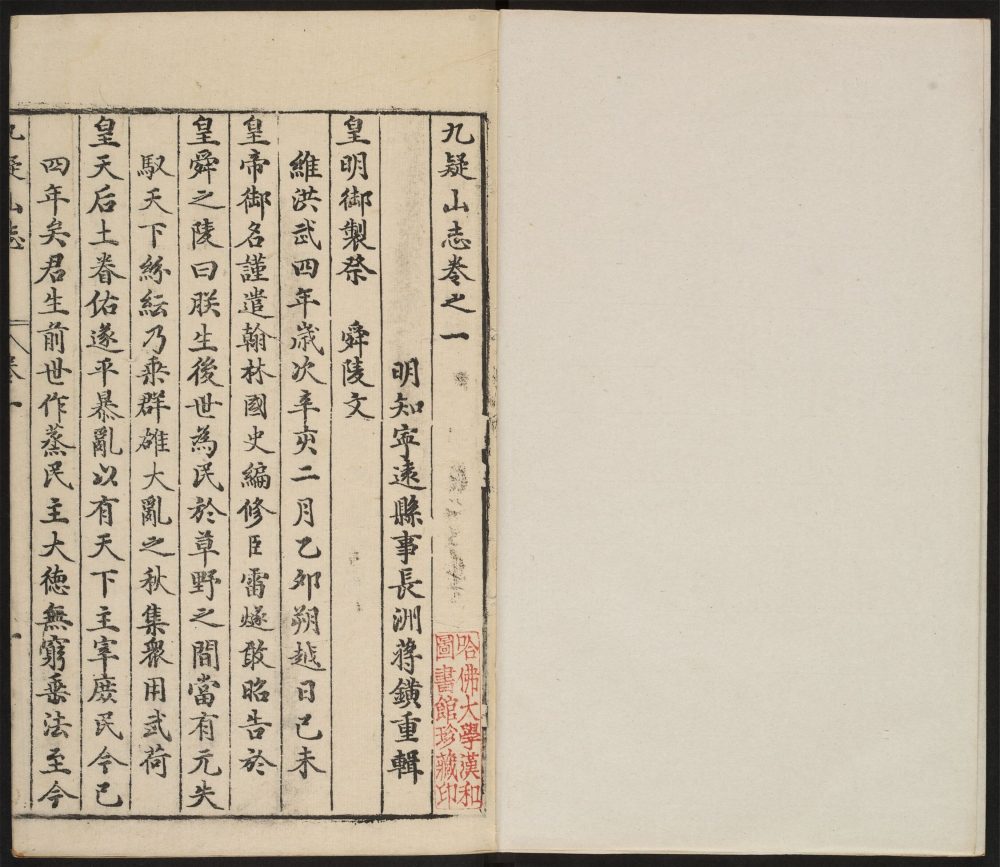 九疑山志卷之一
明知寧遠縣事長洲蔣鐄重輯
皇明御製祭　舜陵文
維洪武四年歲次辛亥二月乙卯朔越日己未
皇帝御名謹遣翰林國史編修臣雷燧敢昭告於
皇舜之陵曰朕生後世為民於草野之間當有元失
馭天下紛紜乃乘群雄大亂之秋集衆用武荷
皇天后土眷佑遂平暴亂以有天下主宰庶民今已
四年矣君生前世作蒸民主大德無窮垂法至今
九疑山志　卷一　一
哈佛大學漢和
圖書館珍藏印